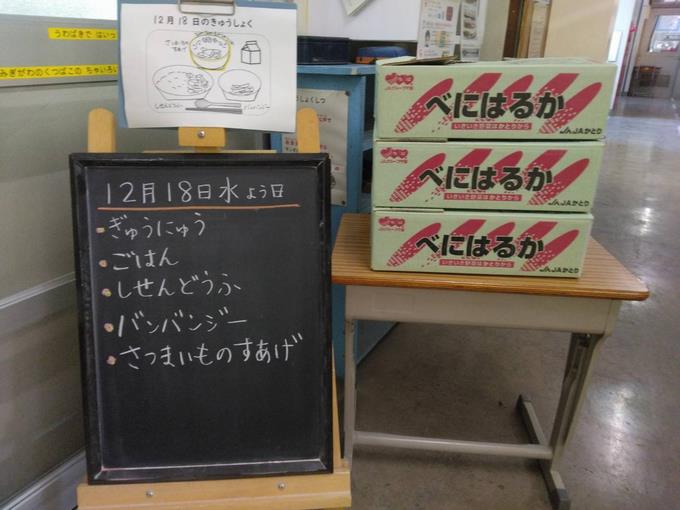 12月18日のきゅうしょく
さつまいもの
すあげ
しせんどうふ
バンバンジー
うわばきで はいっ
みぎがわのくつばこの ちゃいろい
12月18日水よう日
ぎゅうにゅう
ごはん
しせんどうふ
バンバンジー
さつまいものすあげ
べにはるか
いきいき野菜はかとりから
JAかとり
べにはるか
いきいき野菜はかとりから
JAかとり
べにはるか
いきいき野菜はかとりから
JAかとり